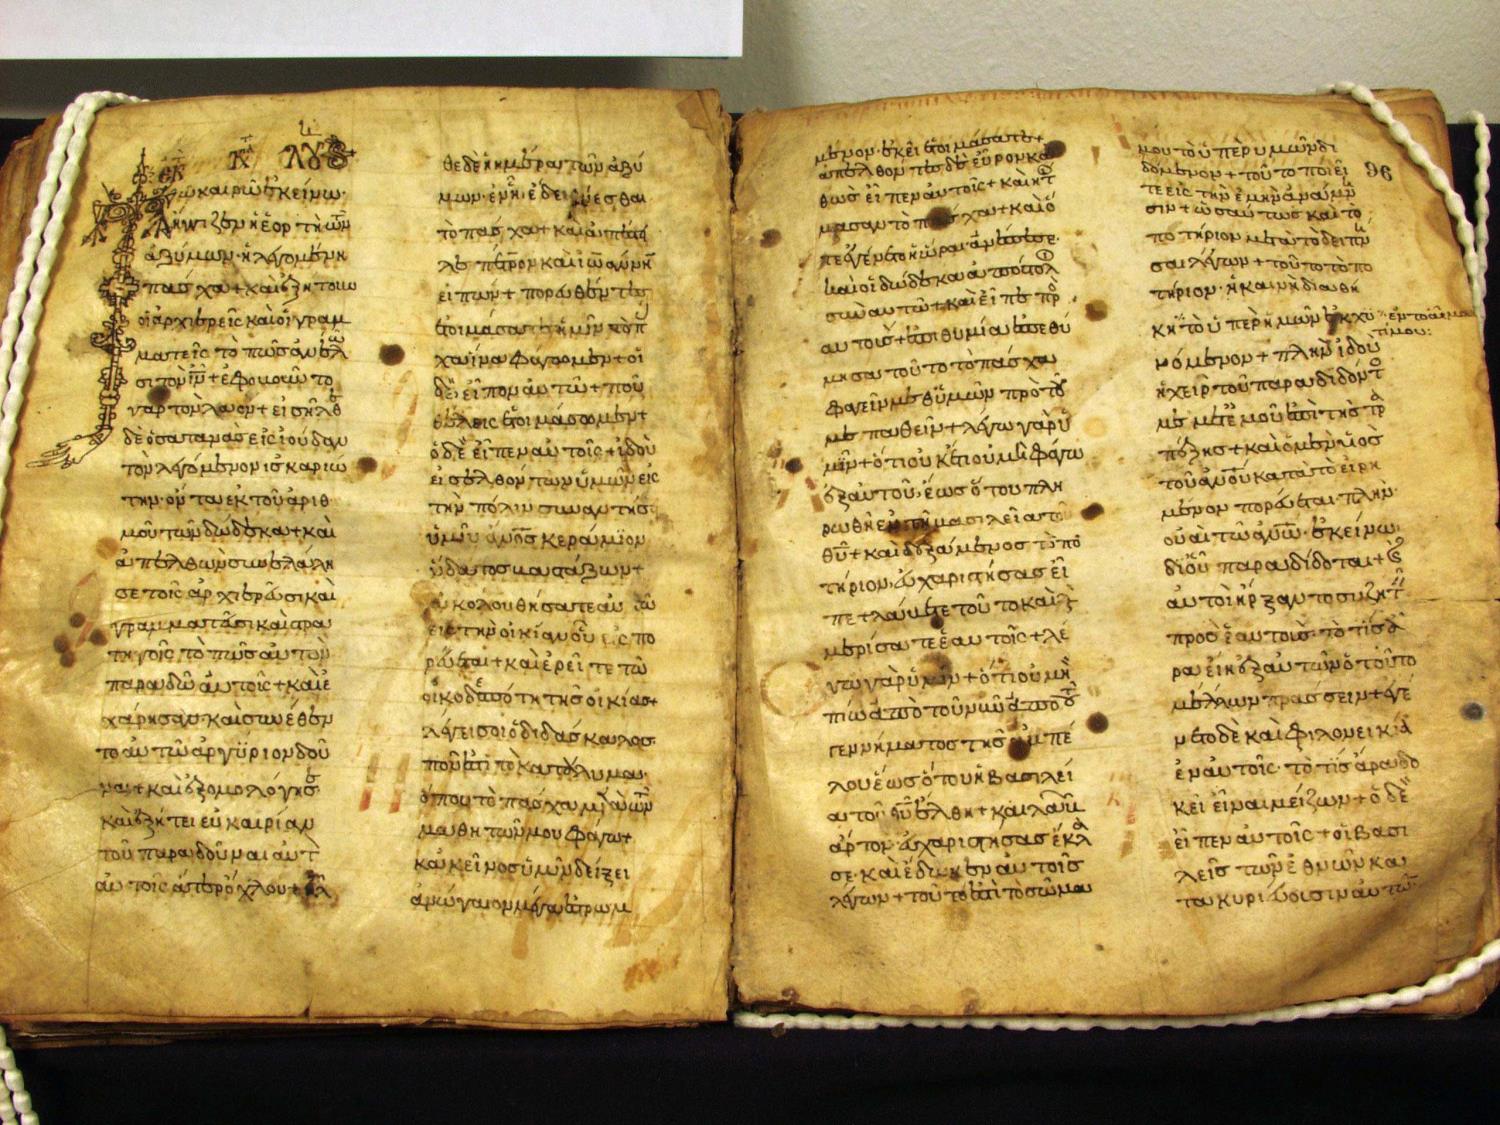 τῶ καιρῶ ἐκείνω·
ἤγγιζεν ἡ ἑορτὴ τῶν
ἀζύμων· ἡ λεγομένη
πάσχα + καὶ ἐζήτουν
οἱ ἀρχιερεῖς καὶ οἱ γραμ
ματεῖς τὸ πῶς ἀνέλω
σι τὸν ιν + ἐφοβοῦντο
γὰρ τὸν λαόν + εἰσῆλθε
δὲ ὁ σατανᾶς εἰς ἰούδαν
τὸν λεγόμενον ἰσκαριώ
την· ὄντα ἐκ τοῦ ἀριθ
μοῦ τῶν δώδεκα + καὶ
ἀπελθὼν συνελάλη
σε τοῖς ἀρχιερεῦσι καὶ
γραμματεῦσι καὶ στρα
τηγοῖς τὸ πῶς αὐτὸν
παραδῶ αὐτοῖς + καὶ ἐ
χάρησαν· καὶ συνέθεν
το αὐτῶ ἀργύριον δοῦ
ναι + καὶ ἐξομολόγησε·
καὶ ἐζήτει εὐκαιρίαν
τοῦ παραδοῦναι αὐτ
αὐτοῖς ἄτερ ὄχλου + ἦλ
θε δὲ ἡ ἡμέρα τῶν ἀζύ
μων· ἐν ἧ ἔδει θύεσθαι
τὸ πάσχα + καὶ ἀπέστει
λε πέτρον καὶ ἰωάννην
εἰπών + πορευθέντες
ἑτοιμάσατε ἡμῖν τὸ π
χα ἵνα φάγομεν + οἱ
δὲ εἶπον αὐτῶ + ποῦ
θέλεις ἑτοιμάσομεν +
ὁ δὲ εἶπεν αὐτοῖς + ἰδοὺ
εἰσελθόντων ὑμῶν εἰς
τὴν πόλιν συναντήσει
ὑμῖν ανος κεράμιον
ὕδατος βαστάζων +
ἀκολουθήσατε αὐτῶ
εἰς τὴν οἰκίαν οὗ εἰσπο
ρεύεται + καὶ ἐρεῖτε τῶ
οἰκοδεσπότη τῆς οἰκίας +
λέγει σοι ὁ διδάσκαλος·
ποῦ ἐστι τὸ κατάλυμα·
ὅπου τὸ πάσχα μετὰ τῶν
μαθητῶν μου φάγω +
κἀκεῖνος ὑμῖν δείξει
ἀνώγαιον μέγα ἐστρωμ
μένον· ἐκεῖ ἑτοιμάσατε +
ἀπελθόντες δὲ εὗρον κα
θὼς εἶπεν αὐτοῖς + καὶ ἡτ
μασαν τὸ πάσχα + καὶ ὅ
τε ἐγένετο ἡ ὥρα· ἀνέπεσε·
καὶ οἱ δώδεκα ἀπόστολ
σὺν αὐτῶ + καὶ εἶπε πρ
αὐτούς + ἐπιθυμία ἐπεθύ
μησα τοῦτο τὸ πάσχα
φαγεῖν μεθ' ὑμῶν πρὸ τοῦ
με παθεῖν + λέγω γὰρ ὑ
μῖν + ὅτι οὐκέτι οὐ μὴ φάγω
ἐξ αὐτοῦ, ἕως ὅτου πλη
ρωθῆ ἐν τῆ βασιλεία τοῦ
θυ + καὶ δεξάμενος τὸ πο
τήριον, εὐχαριστήσας εἶ
πε + λάβετε τοῦτο καὶ δ
μερίσατε ἑαυτοῖς + λέ
γω γὰρ ὑμῖν + ὅτι οὐ μὴ
πίω ἀπὸ τοῦ νῦν ἀπὸ τοῦ
γεννήματος τῆς ἀμπέ
λου ἕως ὅτου ἡ βασιλεί
α τοῦ θυ ἔλθη + καὶ λαβὼν
ἄρτον· εὐχαριστήσας ἔκλα
σε· καὶ ἔδωκεν αὐτοῖς
λέγων + τοῦτό ἐστι τὸ σῶμα
μου τὸ ὑπὲρ ὑμῶν δι
δόμενον + τοῦτο ποιεῖ
τε εἰς τὴν ἐμὴν ἀνάμν
σιν + ὡσαύτως καὶ τὸ
ποτήριον μετὰ τὸ δειπν
σαι λέγων + τοῦτο τὸ πο
τήριον· ἡ καινὴ διαθή
κη τὸ ὑπὲρ ἡμῶν ἐκχυ ἐν τῶ αἵμα
τί μου:
νόμενον + πλὴν ἰδοὺ
ἡ χεὶρ τοῦ παραδιδόντ
με μετ' ἐμοῦ ἐπὶ τῆς τρ
πέζης + καὶ ὁ μὲν υἱὸς
τοῦ ανου κατὰ τὸ εἰρη
μένον πορεύεται· πλὴν
οὐαὶ τῶ ανω ἐκείνω·
δι' οὗ παραδίδοται + καὶ
αὐτοὶ ἤρξαντο συζητ
πρὸς ἑαυτούς· τὸ τίς ἄ
ρα εἴη ἐξ αὐτῶν ὁ τοῦτο
μέλλων πράσσειν + ἐγέ
νετο δὲ καὶ φιλονεικία
ἐν αὐτοῖς· τὸ τίς ἄρα δο
κεῖ εἶναι μείζων + ὁ δὲ
εἶπεν αὐτοῖς + οἱ βασι
λεῖς τῶν ἐθνῶν κα
τακυριεύουσιν αὐτῶν